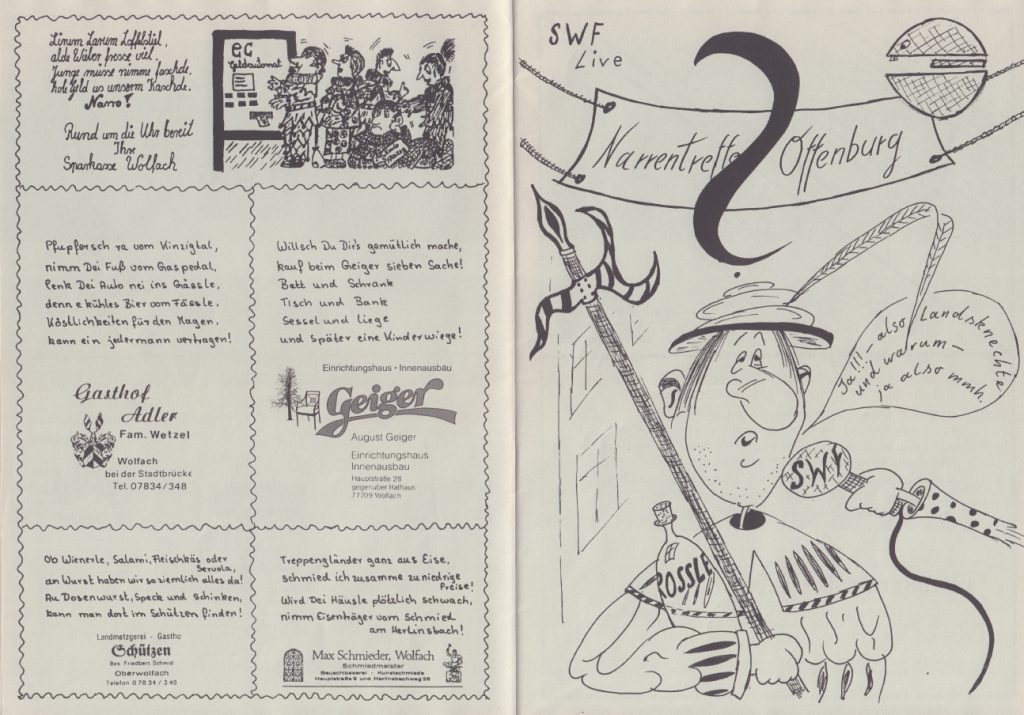 Linum Larum Loffelstiel,
alde Wiiber fresse viel.
Junge müsse nimme faschde,
hole Geld us unserm Kaschde.
Narro!
Rund um die Uhr bereit
Ihre
Sparkasse Wolfach
EC
Geldautomat
Pfupfersch ra vom Kinzigtal,
nimm Dei Fuß vom Gaspedal,
lenk Dei Auto nei ins Gässle,
denn e kühles Bier vom Fässle,
Köstlichkeiten für den Magen,
kann ein jedermann vertragen!
Gasthof
Adler
Fam. Wetzel
Wolfach
bei der Stadtbrücke
Tel. 07834/348
Willsch Du Dir's gemütlich mache,
kauf beim Geiger sieben Sache!
Bett und Schrank
Tisch und Bank
Sessel und Liege
und Später eine Kinderwiege!
Einrichtungshaus · Innenausbau
Geiger
August Geiger
Einrichtungshaus
Innenausbau
Hauptstraße 28
gegenüber Rathaus
77709 Wolfach
Ob Wienerle, Salami, Fleischkäs oder
Servola,
an Wurst haben wir so ziemlich alles da!
Au Dosenwurst, Speck und Schinken,
kann man dort im Schützen finden!
Landmetzgerei - Gastho
Schützen
Bes. Friedbert Schmid
Oberwolfach
Telefon 07834/349
Treppengländer ganz aus Eise,
schmied ich zusamme zu niedrige
Preise!
Wird Dei Häusle plötzlich schwach,
nimm Eisenträger vom Schmied
am Herlinsbach!
Max Schmieder, Wolfach
Schmiedmeister
Bauschlosserei - Kunstschmiede
Hauptstraße 9 und Herlinsbachweg 36
SWF
Live
Narrentreffe
Offenburg
?
Ja!!! - also Landsknechte
und warum -
ja also mmh.
SWF
ROSSLE